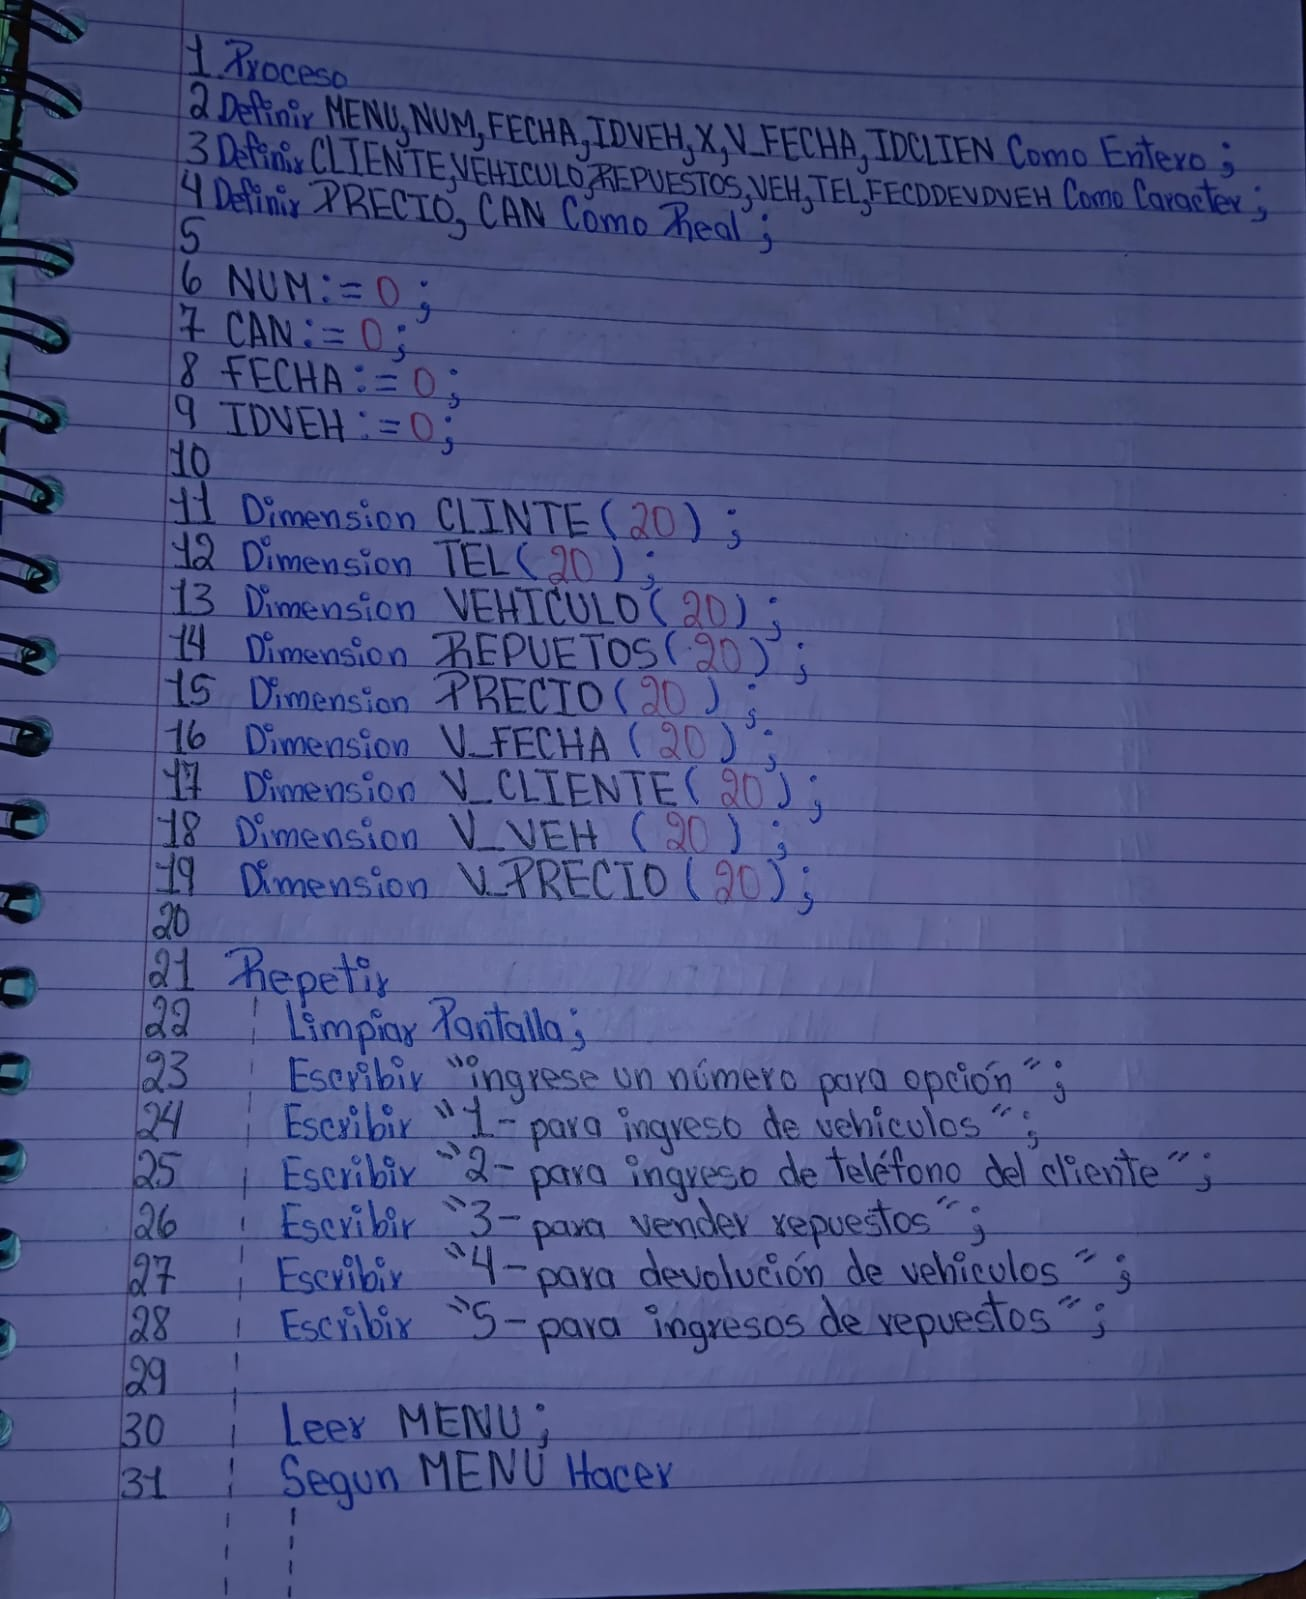 1 Proceso
2 Definir MENU, NUM, FECHA, IDVEH, X, V_FECHA, IDCLIEN Como Entero;
3 Definir CLIENTE, VEHICULO, REPUESTOS, VEH, TEL, FECDDEVDVEH Como Caracter;
4 Definir PRECIO, CAN Como Real;
5
6 NUM:=0;
7 CAN:=0;
8 FECHA:=0;
9 IDVEH:=0;
10
11 Dimension CLINTE(20);
12 Dimension TEL(20);
13 Dimension VEHICULO(20);
14 Dimension REPUETOS(20);
15 Dimension PRECIO(20);
16 Dimension V_FECHA (20);
17 Dimension V_CLIENTE(20);
18 Dimension V_VEH (20);
19 Dimension V_PRECIO(20);
20
21 Repetir
22 Limpiar Pantalla;
23 Escribir "ingrese un número para opción";
24 Escribir "1-para ingreso de vehiculos";
25 Escribir "2-para ingreso de teléfono del cliente";
26 Escribir "3-para vender repuestos";
27 Escribir "4-para devolución de vehiculos";
28 Escribir "5-para ingresos de repuestos";
29
30 Leer MENU;
31 Segun MENU Hacer